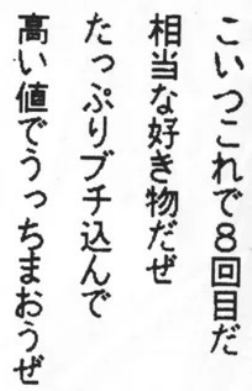 こいつこれで８回目だ
相当な好き物だぜ
たっぷりブチ込んで
高い値でうっちまおうぜ